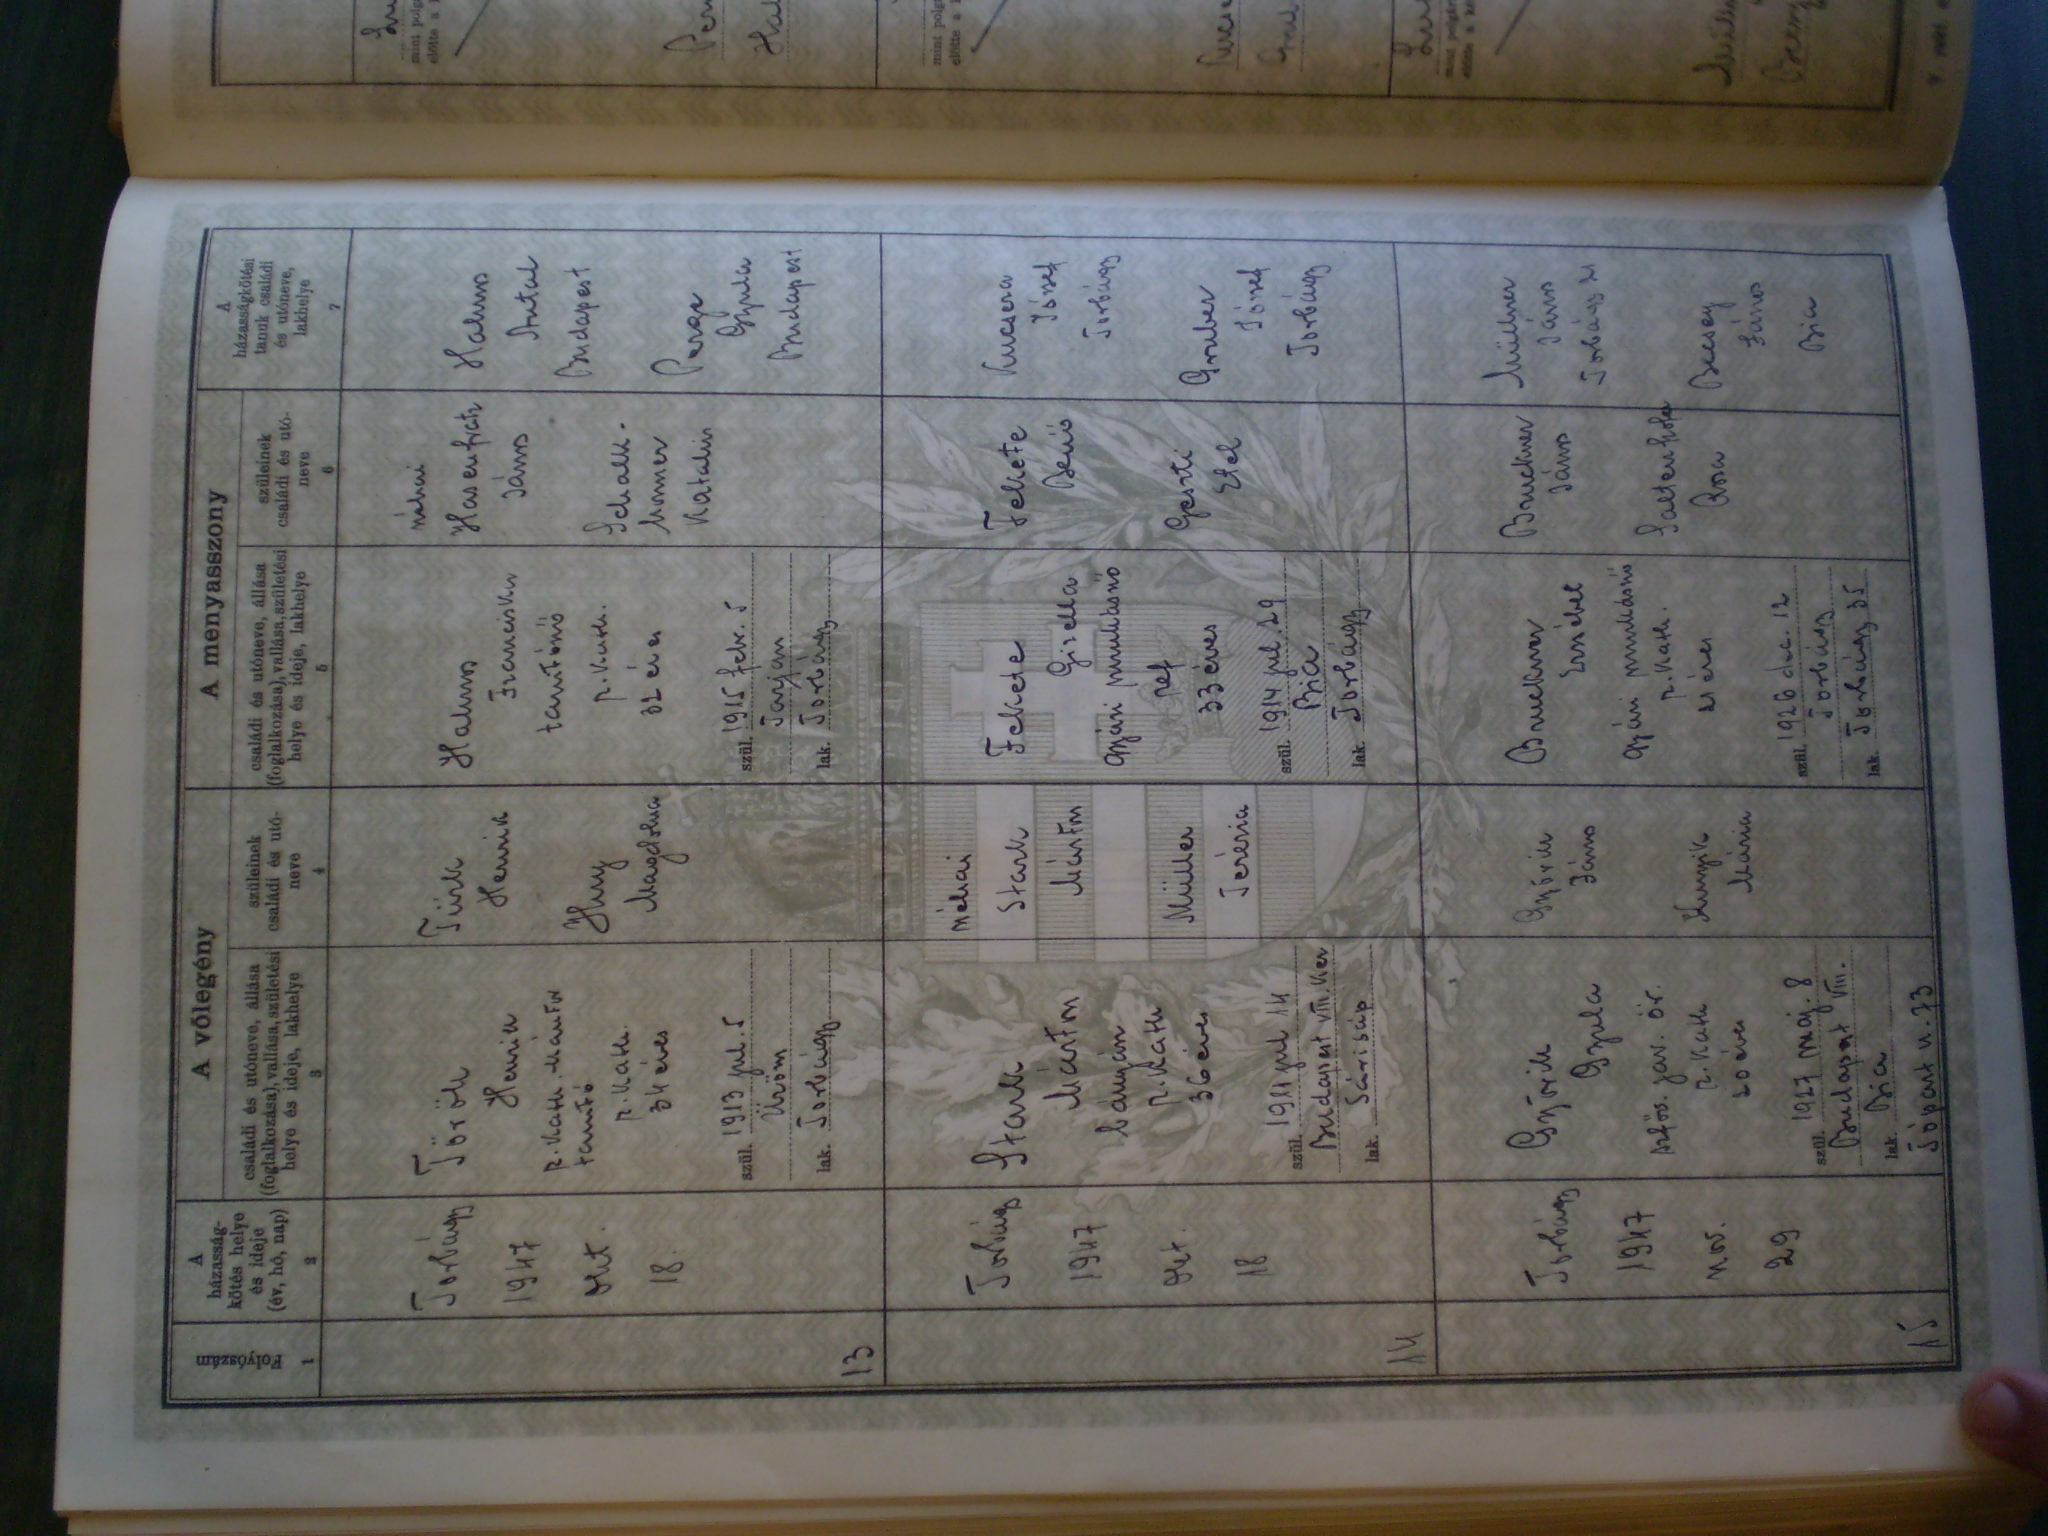 A vőlegény
A menyasszony
Folyószám
1
A
házasság-
kötés helye
és ideje
(év, hó, nap)
2
családi és utóneve, állása
(foglalkozása), vallása, születési
helye és ideje, lakhelye
3
szüleinek
családi és utó-
neve
4
családi és utóneve, állása
(foglalkozása), vallása, születési
helye és ideje, lakhelye
5
szüleinek
családi és utó-
neve
6
A
házasságkötési
tanuk családi
és utóneve,
lakhelye
7
13
Torbágy
1947
okt.
18.
Török
Henrik
r. kath. kántor
tanító
r. kath.
34 éves
szül. 1913 jul. 5
Üröm
lak. Torbágy
Türk
Henrik
Huy
Magdolna
Halmos
Franciska
tanítónő
r. kath.
32 éves
szül. 1915 febr. 5
Tarján
lak. Torbágy
néhai
Hasenfratz
János
Schalk-
hammer
Katalin
Halmos
Antal
Budapest
Perge
Gyula
Budapest
14
Torbágy
1947
okt.
18
Stark
Márton
bányász
r. kath
36 éves
szül. 1911 jul 14
Budapest VIII. ker
lak. Sárisáp
néhai
Stark
Márton
Müller
Terézia
Fekete
Gizella
gyári munkásnő
ref
33 éves
szül. 1914 jul. 29
Bia
lak. Torbágy
Fekete
Benő
Geszti
Etel
Kucsera
József
Torbágy
Gruber
József
Torbágy
15
Torbágy
1947
nov.
29
Györik
Gyula
r. kath
20 éves
szül. 1927 máj. 8
Budapest VIII.
lak. Bia
Tópart u. 73
Györik
János
Kunyik
Mária
Bruckner
Erzsébet
gyári munkásnő
r. kath.
21 éves
szül. 1926 dec. 12
Torbágy
lak. Torbágy 35
Bruckner
János
Saltenhofer
Rosa
Müllner
János
Torbágy 21
Becsey
János
Bia